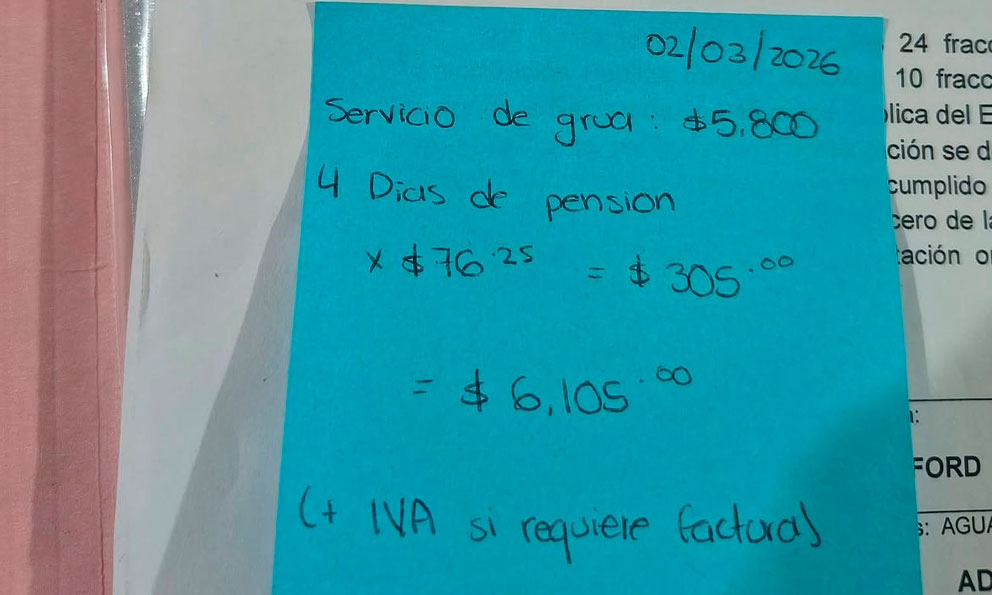 02/03/2026
Servicio de grua: $5,800
4 Dias de pension
x $76.25 = $305.00
= $6,105.00
(+ IVA si requiere factura)
24
10
del
ción se d
cumplido
de
FORD
AGUA
AD